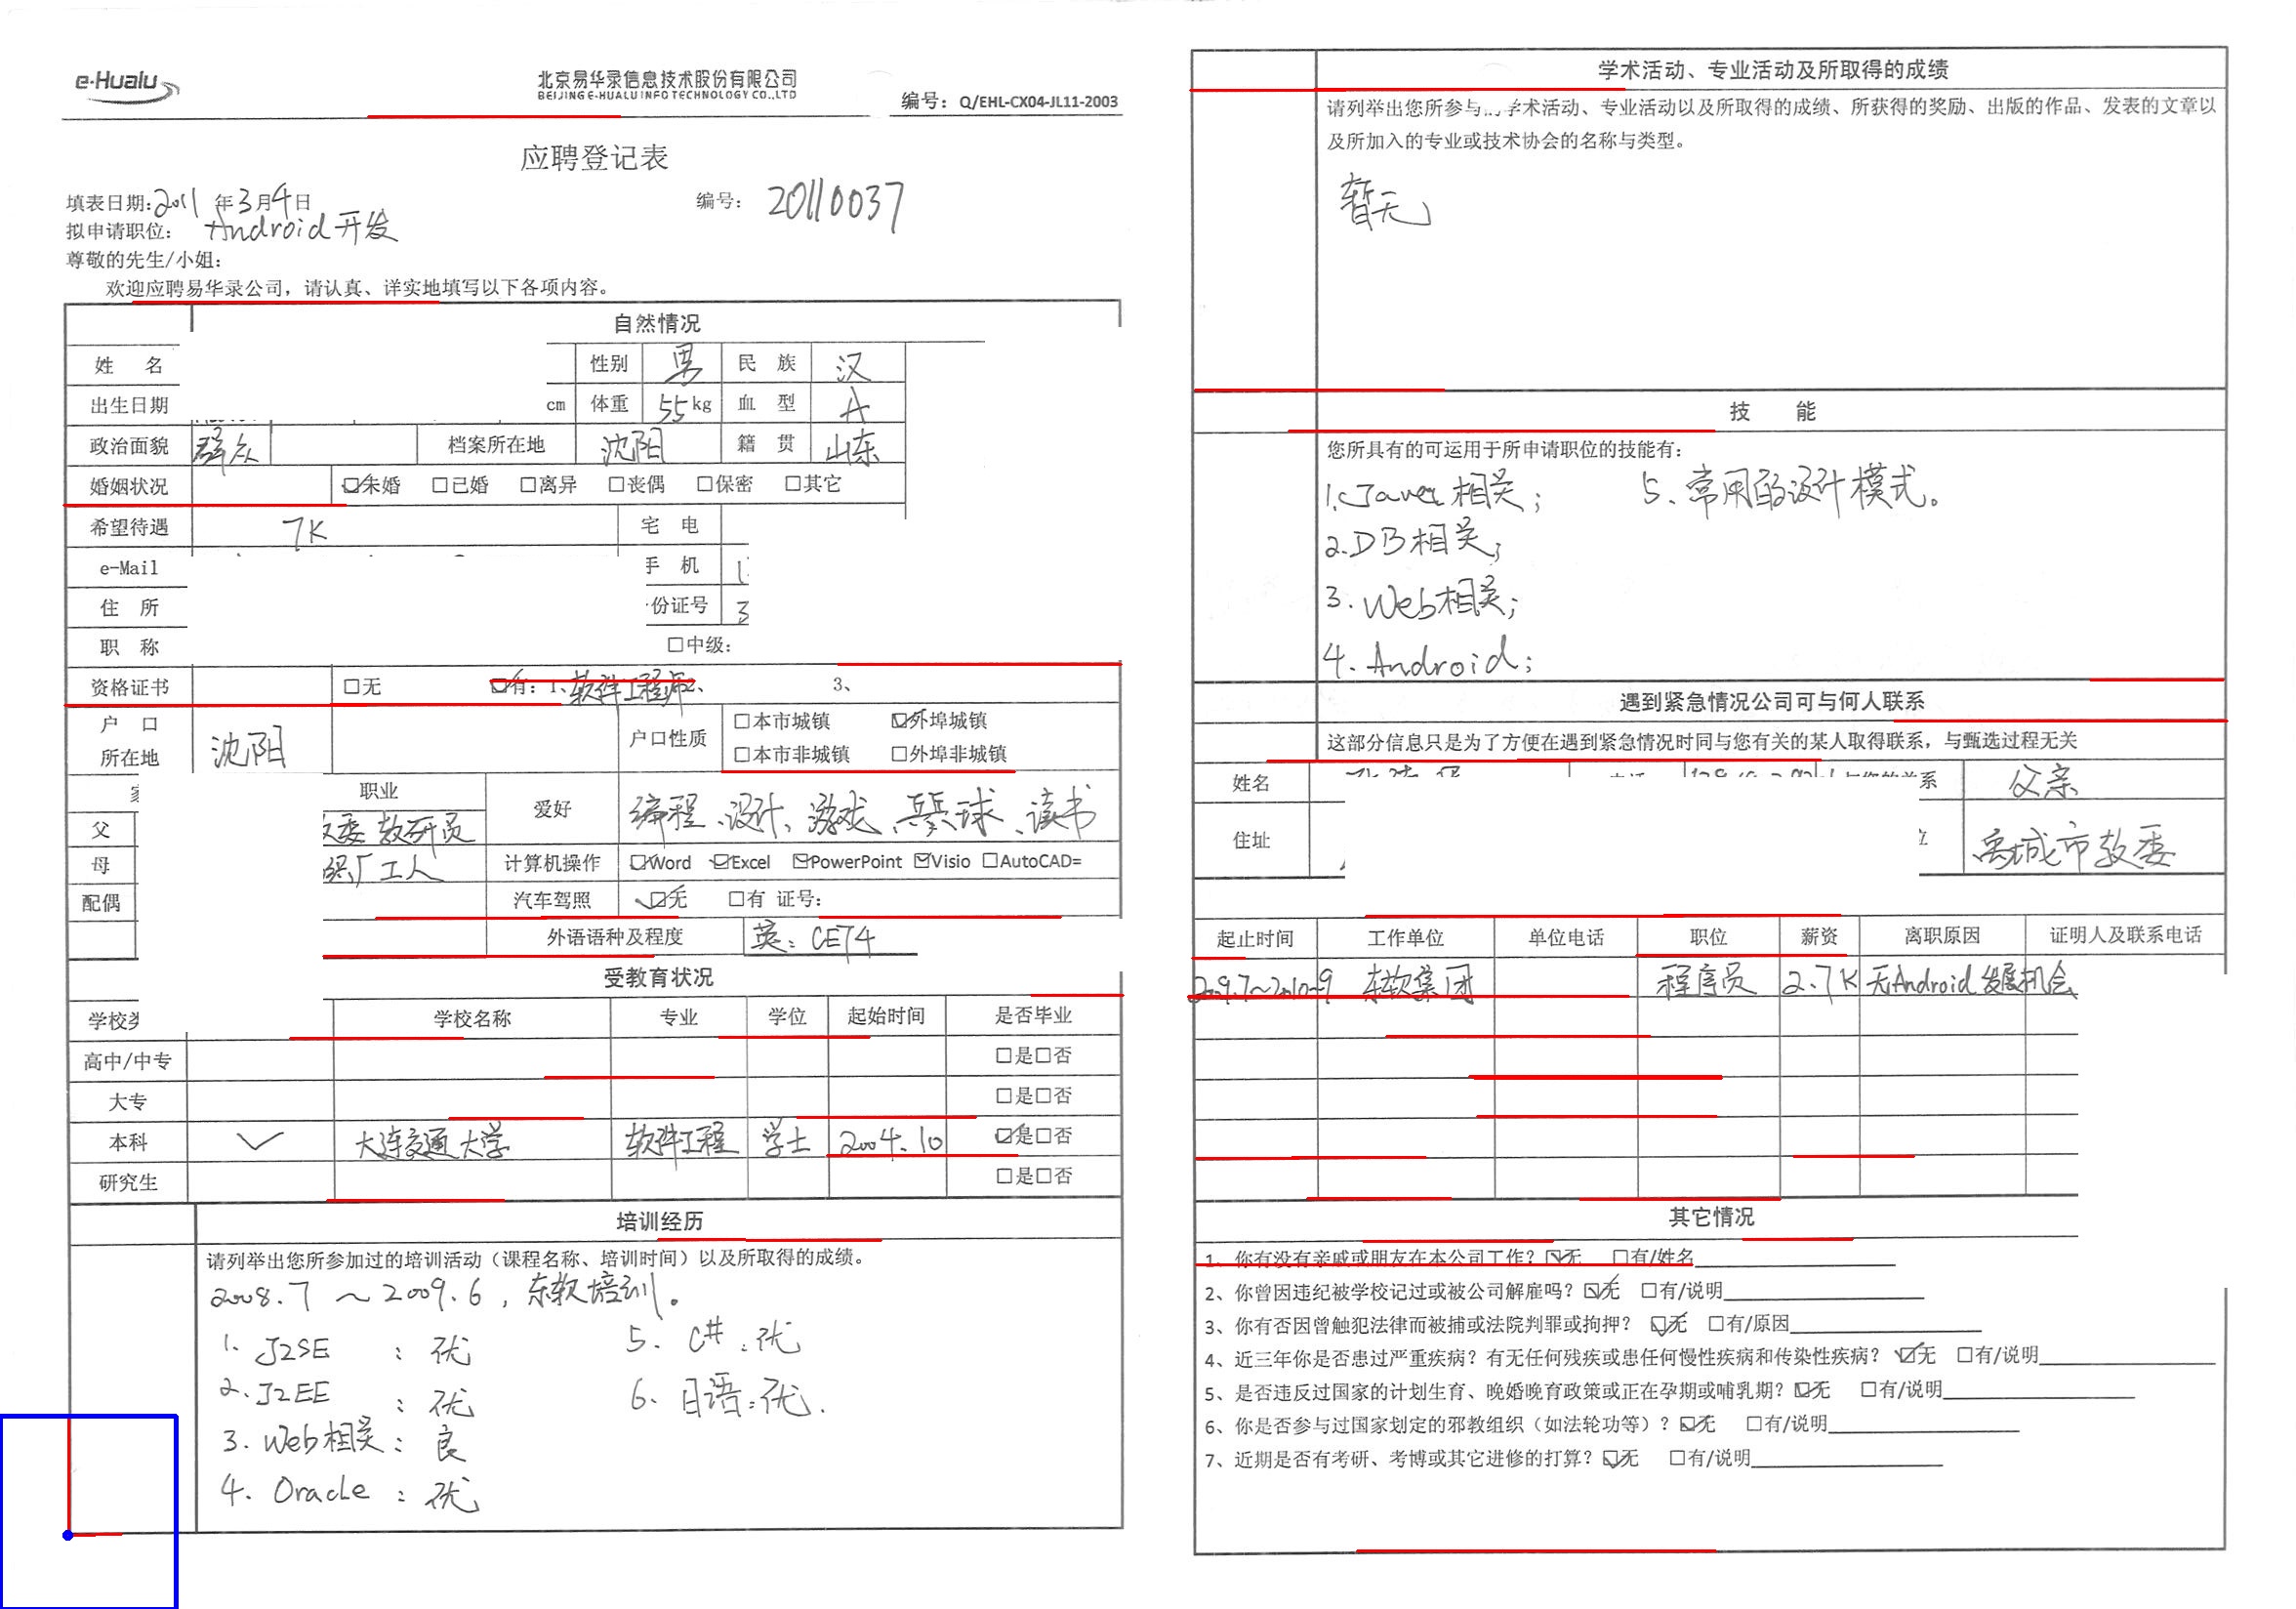 e-Hualu
北京易华录信息技术股份有限公司
BEIJING E-HUALU INFO TECHNOLOGY CO.,LTD
编号：Q/EHL-CX04-JL11-2003
应聘登记表
填表日期:2011 年3月4日 编号： 20110037
拟申请职位： Android开发
尊敬的先生/小姐：
欢迎应聘易华录公司，请认真、详实地填写以下各项内容。
自然情况
姓 名 性别 男 民 族 汉
出生日期 cm 体重 55kg 血 型 A
政治面貌 群众 档案所在地 沈阳 籍 贯 山东
婚姻状况 ☑未婚 □已婚 □离异 □丧偶 □保密 □其它
希望待遇 7K 宅 电
e-Mail 手 机 1
住 所 份证号 3
职 称 □中级：
资格证书 □无 ☑有：1、软件工程师2、 3、
户 口 所在地 沈阳 户口性质 □本市城镇 ☑外埠城镇
□本市非城镇 □外埠非城镇
职业 爱好 编程、设计、游戏、乒乓球、读书
父 教委 教研员
母 厂工人 计算机操作 ☑Word ☑Excel ☑PowerPoint ☑Visio □AutoCAD=
配偶 汽车驾照 ☑无 □有 证号：
外语语种及程度 英：CET4
受教育状况
学校 学校名称 专业 学位 起始时间 是否毕业
高中/中专 □是□否
大专 □是□否
本科 ✓ 大连交通大学 软件工程 学士 2004.10 ☑是□否
研究生 □是□否
培训经历
请列举出您所参加过的培训活动（课程名称、培训时间）以及所取得的成绩。
2008.7 ～ 2009.6，东软培训。
1. J2SE ：优 5. C#：优
2. J2EE ：优 6. 日语：优.
3. Web相关：良
4. Oracle ：优
学术活动、专业活动及所取得的成绩
请列举出您所参与的学术活动、专业活动以及所取得的成绩、所获得的奖励、出版的作品、发表的文章以
及所加入的专业或技术协会的名称与类型。
暂无
技 能
您所具有的可运用于所申请职位的技能有：
1.Java相关； 5、常用的设计模式。
2.DB相关；
3.Web相关；
4.Android；
遇到紧急情况公司可与何人联系
这部分信息只是为了方便在遇到紧急情况时同与您有关的某人取得联系，与甄选过程无关
姓名 系 父亲
住址 禹城市教委
起止时间 工作单位 单位电话 职位 薪资 离职原因 证明人及联系电话
2009.7～2010.9 东软集团 程序员 2.7K 无Android发展机会
其它情况
1、你有没有亲戚或朋友在本公司工作？☑无 □有/姓名
2、你曾因违纪被学校记过或被公司解雇吗？☑无 □有/说明
3、你有否因曾触犯法律而被捕或法院判罪或拘押？ ☑无 □有/原因
4、近三年你是否患过严重疾病？有无任何残疾或患任何慢性疾病和传染性疾病？ ☑无 □有/说明
5、是否违反过国家的计划生育、晚婚晚育政策或正在孕期或哺乳期？☑无 □有/说明
6、你是否参与过国家划定的邪教组织（如法轮功等）？☑无 □有/说明
7、近期是否有考研、考博或其它进修的打算？☑无 □有/说明